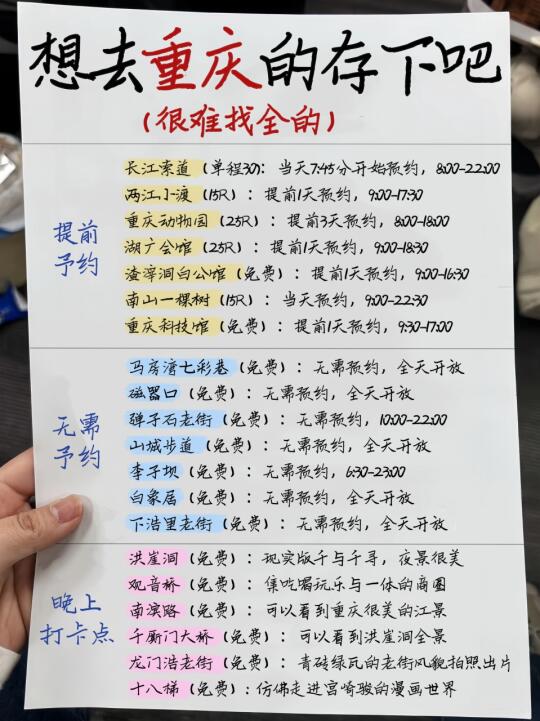 想去重庆的存下吧
(很难找全的)
提前
予约
长江索道(单程30): 当天7:45分开始预约, 8:00-22:00
两江小渡(15R): 提前1天预约, 9:00-17:30
重庆动物园(25R): 提前3天预约, 8:00-18:00
湖广会馆(25R): 提前1天预约, 9:00-18:30
渣滓洞白公馆(免费): 提前1天预约, 9:00-16:30
南山一棵树(15R): 当天预约, 9:00-22:30
重庆科技馆(免费): 提前1天预约, 9:30-17:00
无需
予约
马房湾七彩巷(免费): 无需预约, 全天开放
磁器口(免费): 无需预约, 全天开放
弹子石老街(免费): 无需预约, 10:00-22:00
山城步道(免费): 无需预约, 全天开放
李子坝(免费): 无需预约, 6:30-23:00
白象居(免费): 无需预约, 全天开放
下浩里老街(免费): 无需预约, 全天开放
晚上
打卡点
洪崖洞(免费): 现实版千与千寻, 夜景很美
观音桥(免费): 集吃喝玩乐与一体的商圈
南滨路(免费): 可以看到重庆很美的江景
千厮门大桥(免费): 可以看到洪崖洞全景
龙门浩老街(免费): 青砖绿瓦的老街风貌拍照出片
十八梯(免费): 仿佛走进宫崎骏的漫画世界